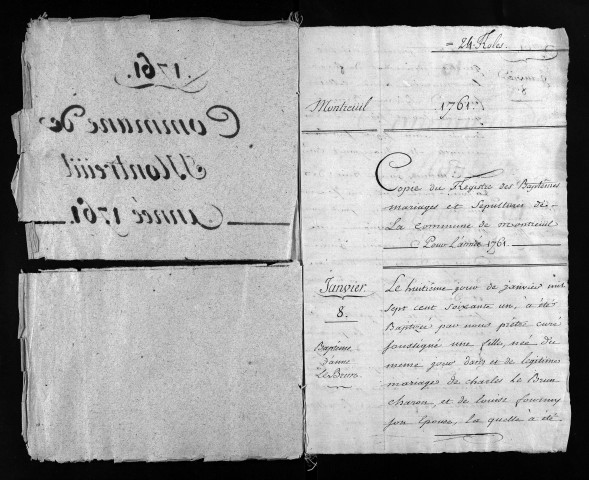 1761.
Commune de
Montreuil
Année 1761.
= 24. Roles.
Montreuil 1761.
Copie du Registre des Baptêmes
mariages et sepultures de
La commune de montreuil
Pour l'année 1761.
Janvier
8.
Baptême
d'anne
Le Brun.
Le huitième jour de janvier mil
sept cent soixante un, a été
Baptisé par nous prêtre curé
soussigné une fille, née du
meme jour dans et de légitime
mariage de charles Le Brun
charon, et de louise
son épouse, la quelle a été